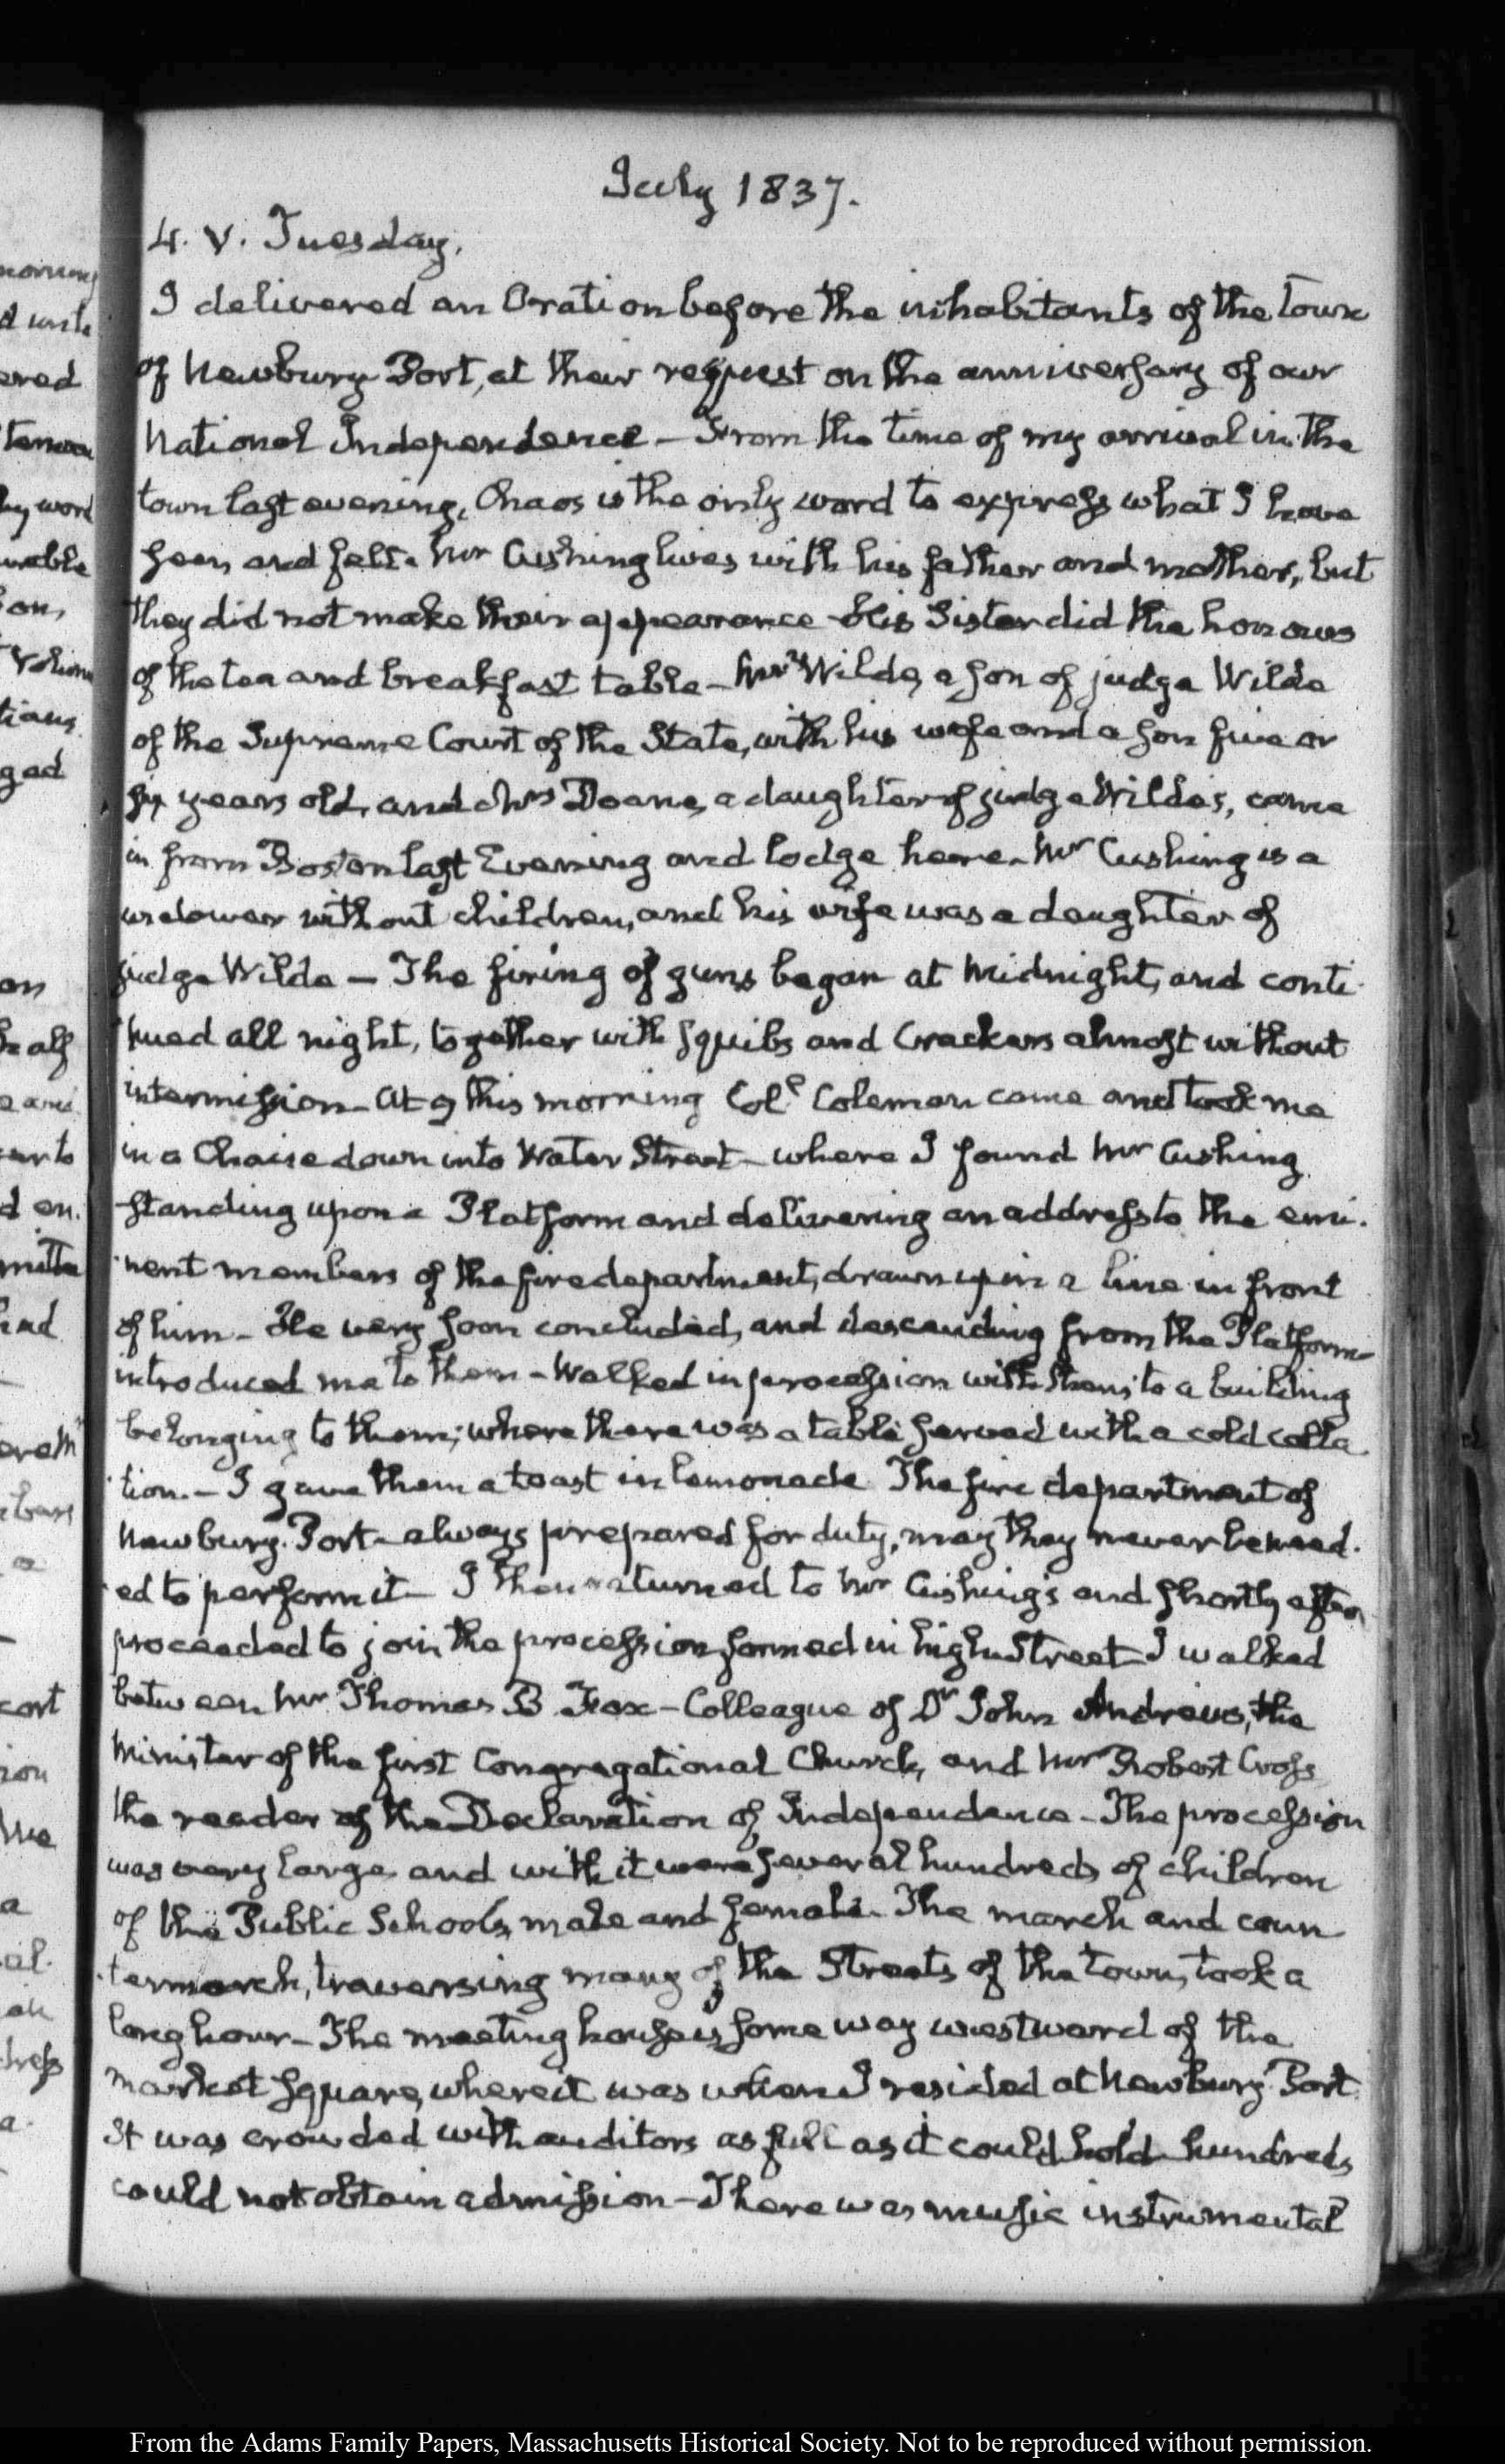 July 1837.
4. V. Tuesday.
I delivered an Oration before the inhabitants of the town
of Newbury Port, at their request on the anniversary of our
National Independence – From the time of my arrival in the
town last evening, Chaos is the only word to express what I have
seen and felt. Mr Cushing lives with his father and mother, but
they did not make their appearance – His Sister did the honours
of the tea and breakfast table – Mr Wilde, a son of judge Wilde
of the Supreme Court of the State, with his wife and a son five or
six years old, and Mrs Doane, a daughter of judge Wilde's, came
in from Boston last Evening and lodge here – Mr Cushing is a
widower without children, and his wife was a daughter of
judge Wilde – The firing of guns began at Midnight, and conti-
nued all night, together with squibs and Crackers almost without
intermission – At 9 this morning Coll Coleman came and took me
in a Chaise down into Water Street – where I found Mr Cushing
standing upon a Platform and delivering an address to the emi-
nent members of the fire department, drawn up in a line in front
of him – He very soon concluded, and descending from the Platform
introduced me to them – Walked in procession with them to a building
belonging to them; where there was a table served with a cold colla
tion. – I gave them a toast in lemonade The fire department of
Newbury-Port – always prepared for duty, may they never be need-
ed to perform it – I then returned to Mr Cushing's and shortly after
proceeded to join the procession formed in high Street – I walked
between Mr Thomas B Fox – Colleague of Dr John Andrews, the
Minister of the first Congregational Church, and Mr Robert Cross
the reader of the Declaration of Independence – The procession
was very large and with it were several hundreds of children
of the Public Schools, male and female – The march and coun
termarch, traversing many of the Streets of the town, took a
long hour – The meeting house is some way westward of the
market square, where it was when I resided at Newbury-Port
It was crowded with auditors as full as it could hold – hundreds
could not obtain admission – There was music instrumental
From the Adams Family Papers, Massachusetts Historical Society. Not to be reproduced without permission.